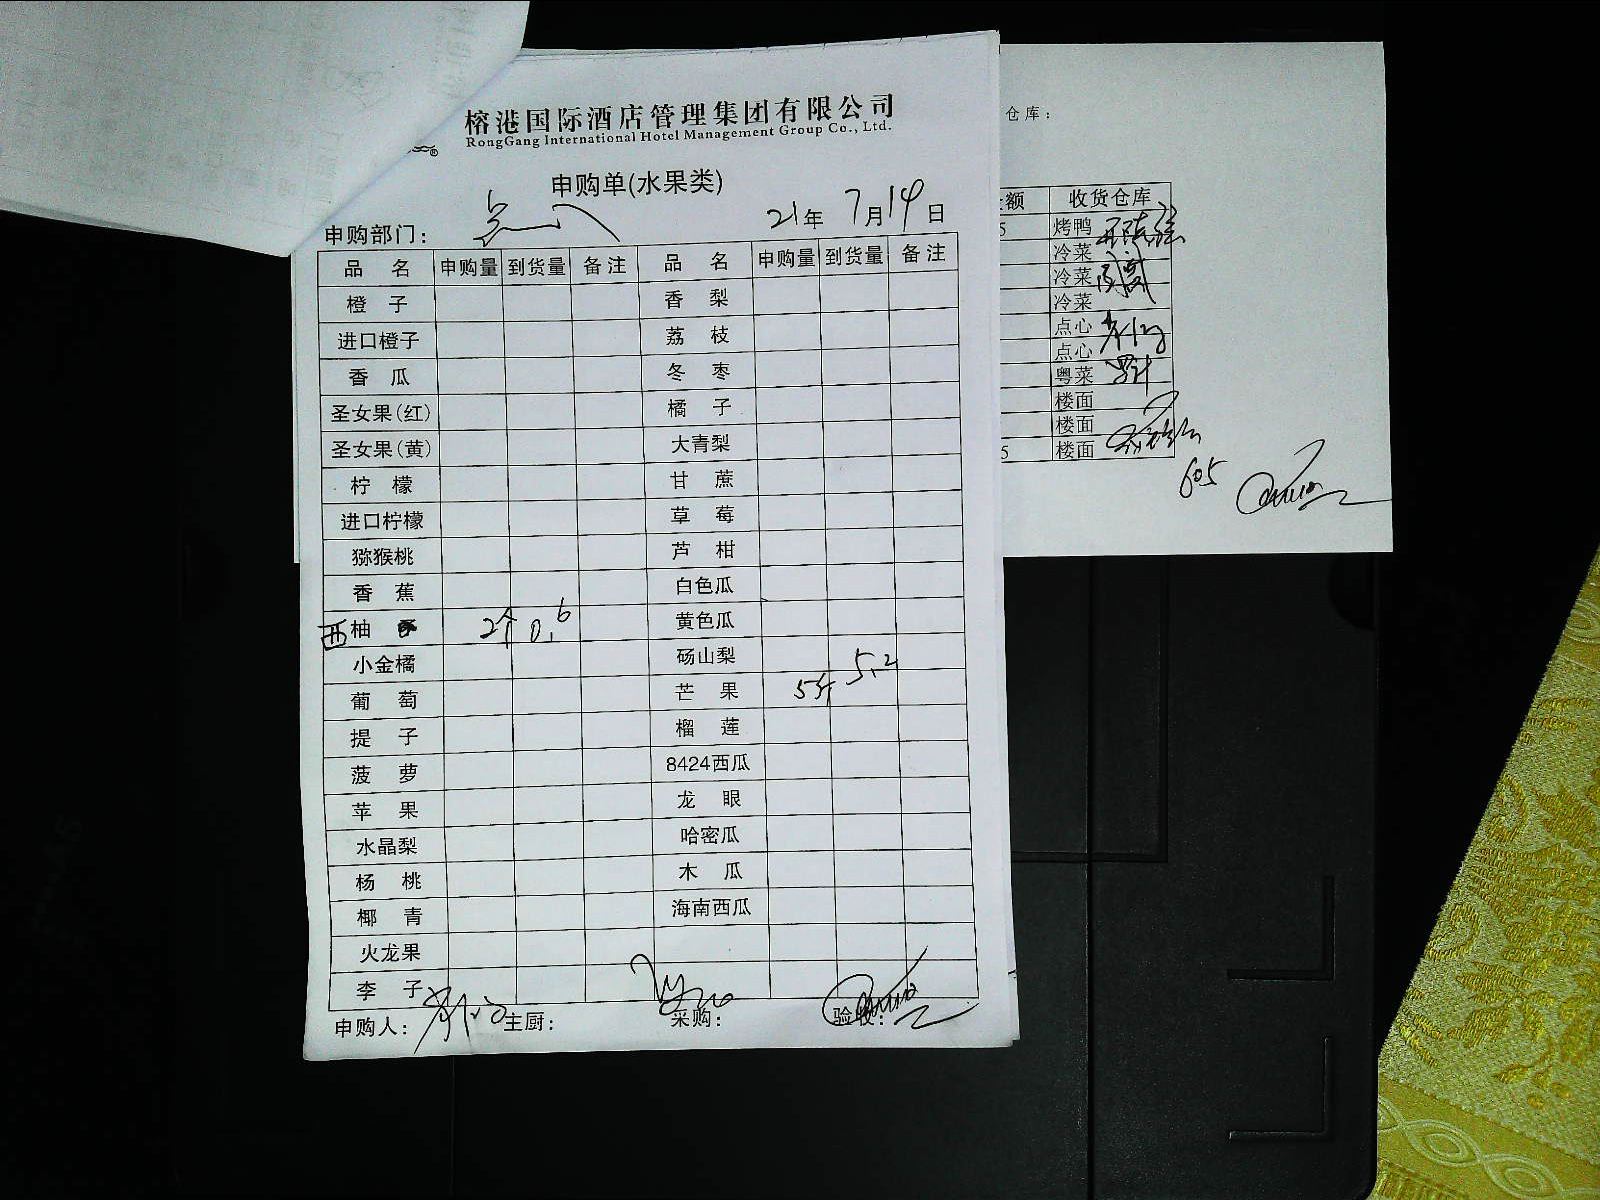 榕港国际酒店管理集团有限公司
RongGang International Hotel Management Group Co., Ltd.
申购单(水果类)
申购部门： 点心 21年 7月14日
品 名 申购量 到货量 备注 品 名 申购量 到货量 备注
橙 子 香 梨
进口橙子 荔 枝
香 瓜 冬 枣
圣女果(红) 橘 子
圣女果(黄) 大青梨
柠 檬 甘 蔗
进口柠檬 草 莓
猕猴桃 芦 柑
香 蕉 白色瓜
西柚 2个 0.6 黄色瓜
小金橘 砀山梨
葡 萄 芒 果 5斤 5.2
提 子 榴 莲
菠 萝 8424西瓜
苹 果 龙 眼
水晶梨 哈密瓜
杨 桃 木 瓜
椰 青 海南西瓜
火龙果
李 子
申购人： 主厨： 采购： 验收：
仓库：
额 收货仓库
5 烤鸭
冷菜
冷菜
冷菜
点心
点心
粤菜
楼面
楼面
5 楼面
605